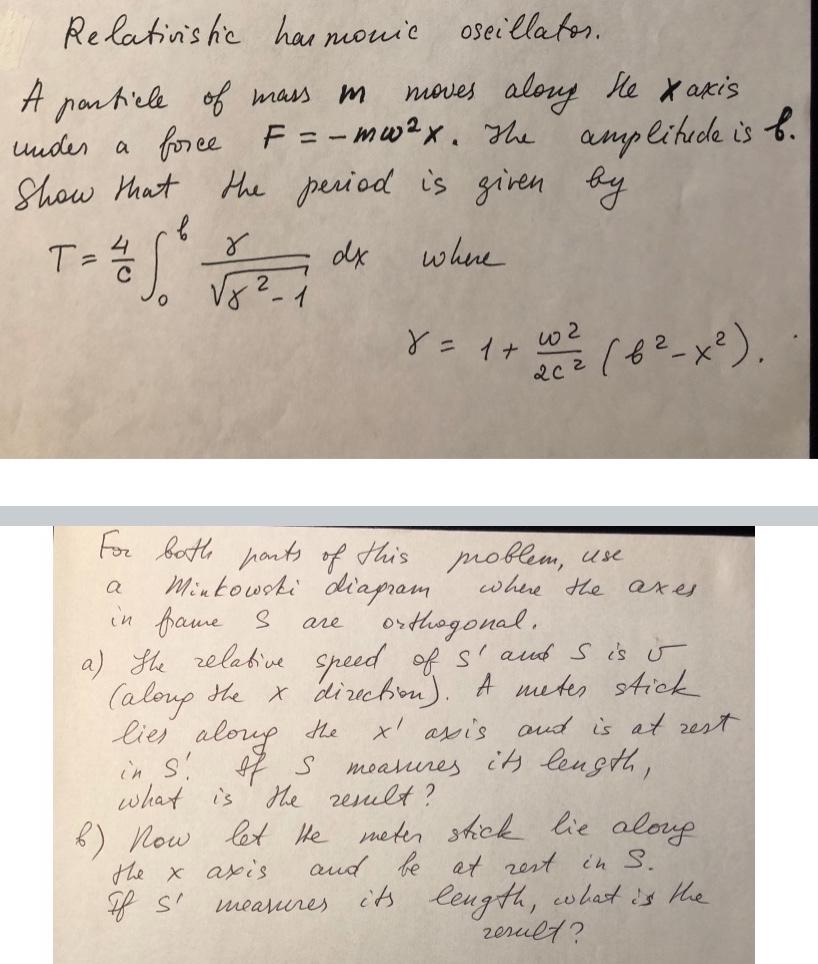 Relativistic harmonic oscillator.
A particle of mass m moves along the x axis
under a force F = -mω²x. The amplitude is b.
Show that the period is given by
T = 4/c ∫₀ᵇ γ/√(γ²-1) dx where
γ = 1 + ω²/2c² (b²-x²).
For both parts of this problem, use
a Minkowski diagram where the axes
in frame S are orthogonal.
a) The relative speed of S' and S is v
(along the x direction). A meter stick
lies along the x' axis and is at rest
in S'. If S measures its length,
what is the result?
b) Now let the meter stick lie along
the x axis and be at rest in S.
If S' measures its length, what is the
result?